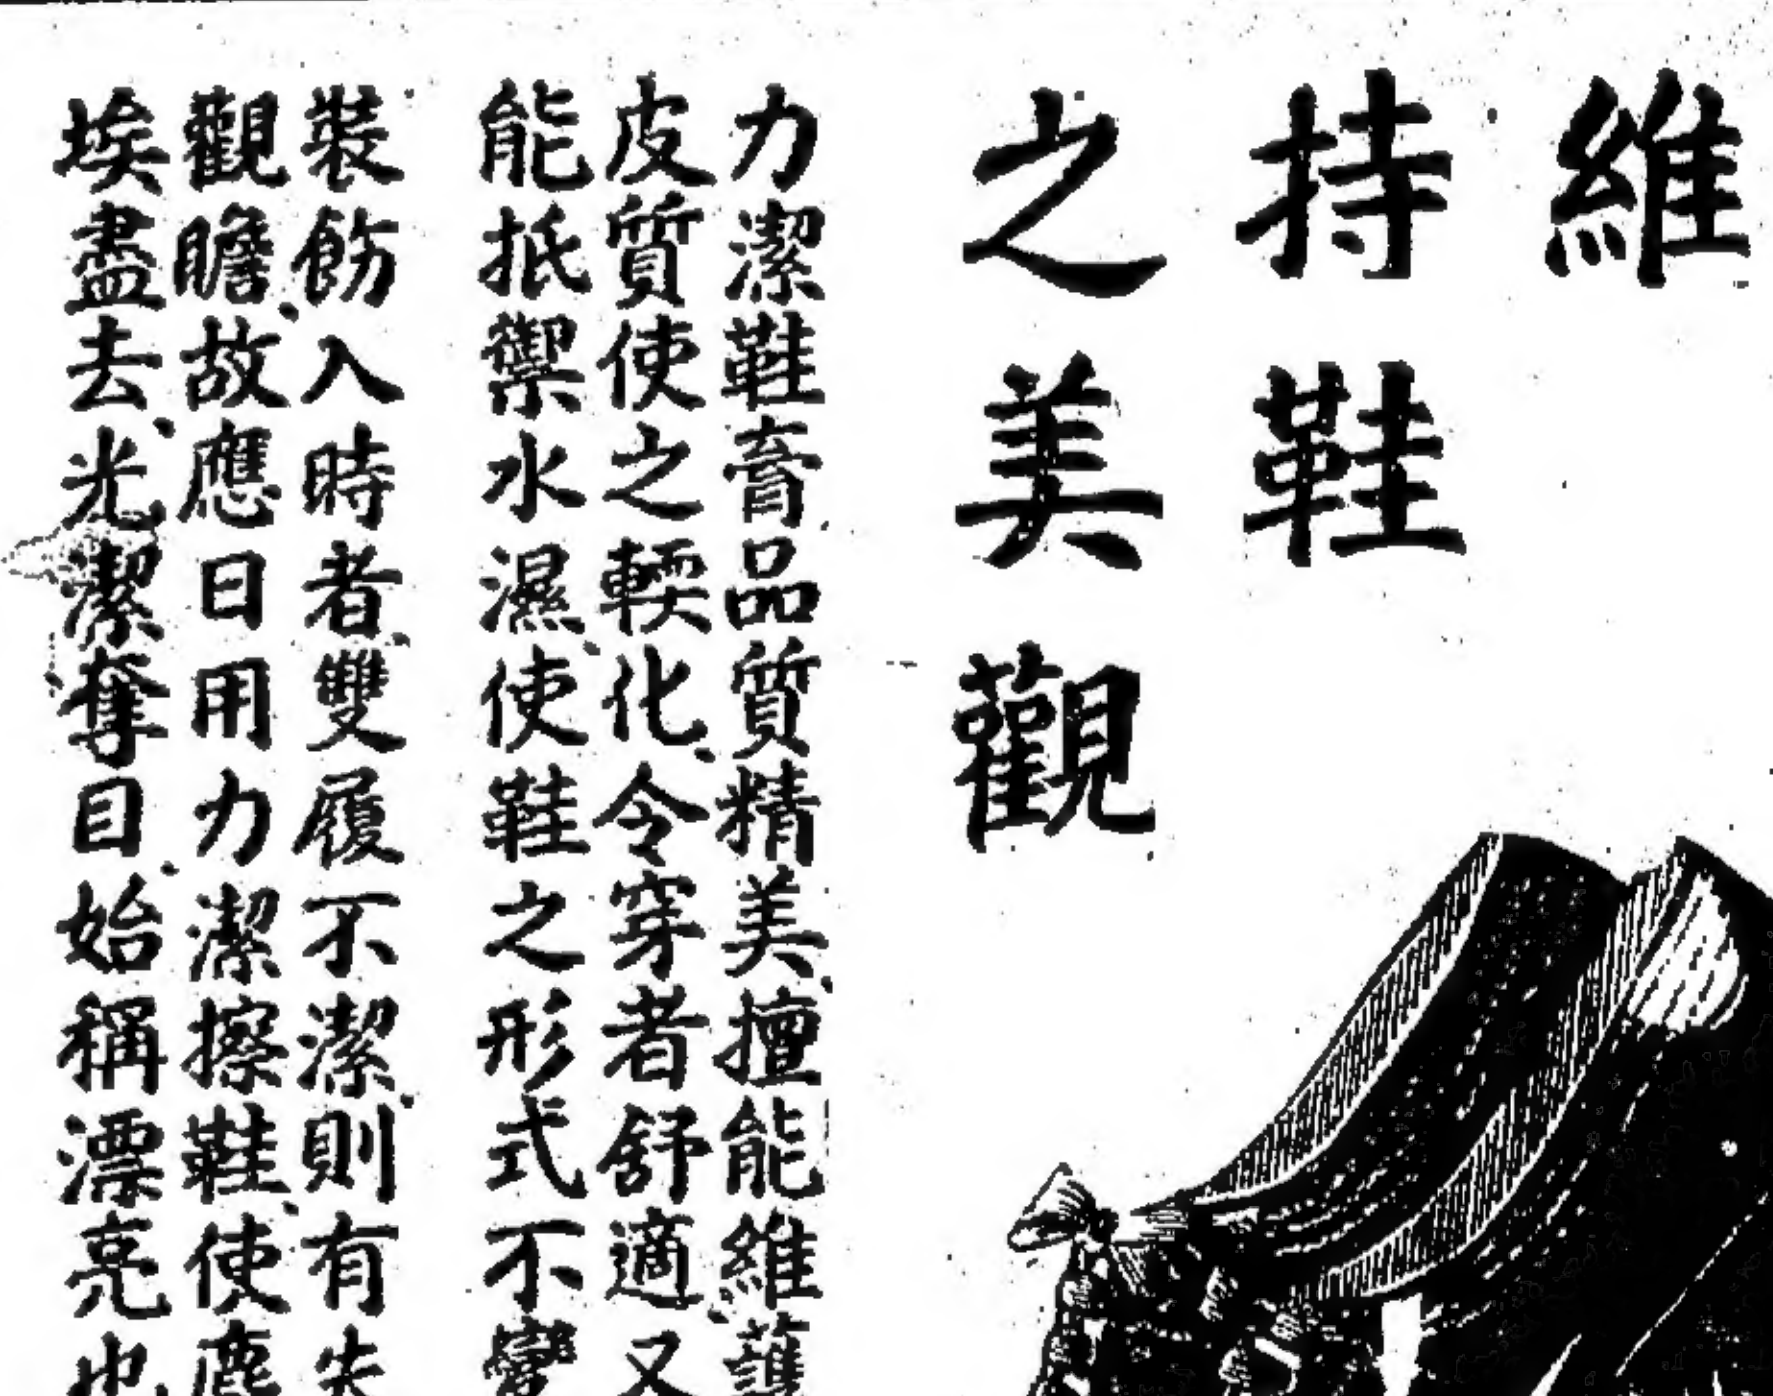 維
持鞋
之美觀
力潔鞋膏品質精美、擅能維護
皮質使之輭化、令穿者舒適、又
能抵禦水濕、使鞋之形式不變
裝飾入時者、雙履不潔、則有失
觀瞻、故應日用力潔擦鞋、使塵
埃盡去、光潔奪目、始稱漂亮也